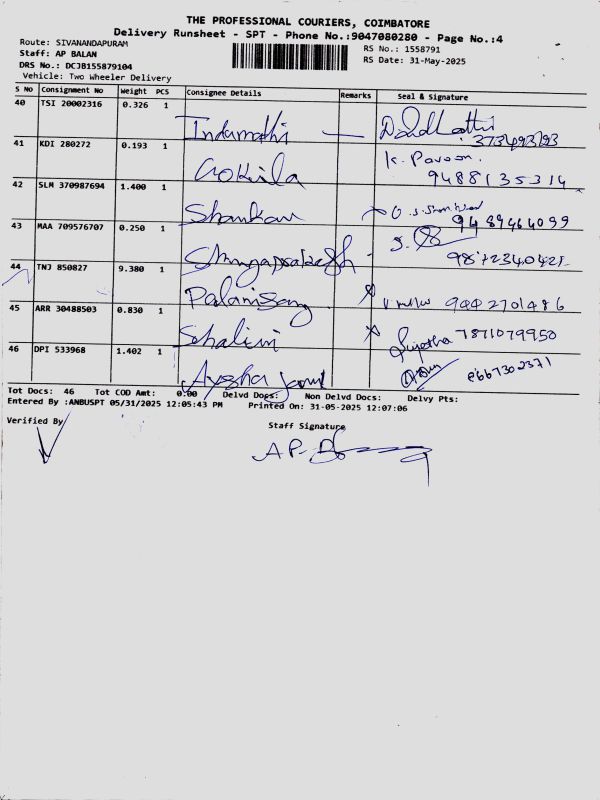 THE PROFESSIONAL COURIERS, COIMBATORE
Delivery Runsheet - SPT - Phone No.:9047080280 - Page No.:4
Route: SIVANANDAPURAM
Staff: AP BALAN
DRS No.: DCJB155879104
Vehicle: Two Wheeler Delivery
RS No.: 1558791
RS Date: 31-May-2025
S No Consignment No Weight PCS Consignee Details Remarks Seal & Signature
40 TSI 20002316 0.326 1 Indumathi
41 KDI 280272 0.193 1 Gokila K. Pavoon. 9488135314
42 SLM 370987694 1.400 1 Shankar 9489464099
43 MAA 709576707 0.250 1 S.
44 TNJ 850827 9.380 1 Palanisamy 9442701486
45 ARR 30488503 0.830 1 Shalini Sujatha 7871079950
46 DPI 533968 1.402 1 Aysha
Tot Docs: 46 Tot COD Amt: 0.00 Delvd Docs: Non Delvd Docs: Delvy Pts:
Entered By :ANBUSPT 05/31/2025 12:05:43 PM Printed On: 31-05-2025 12:07:06
Verified By
Staff Signature